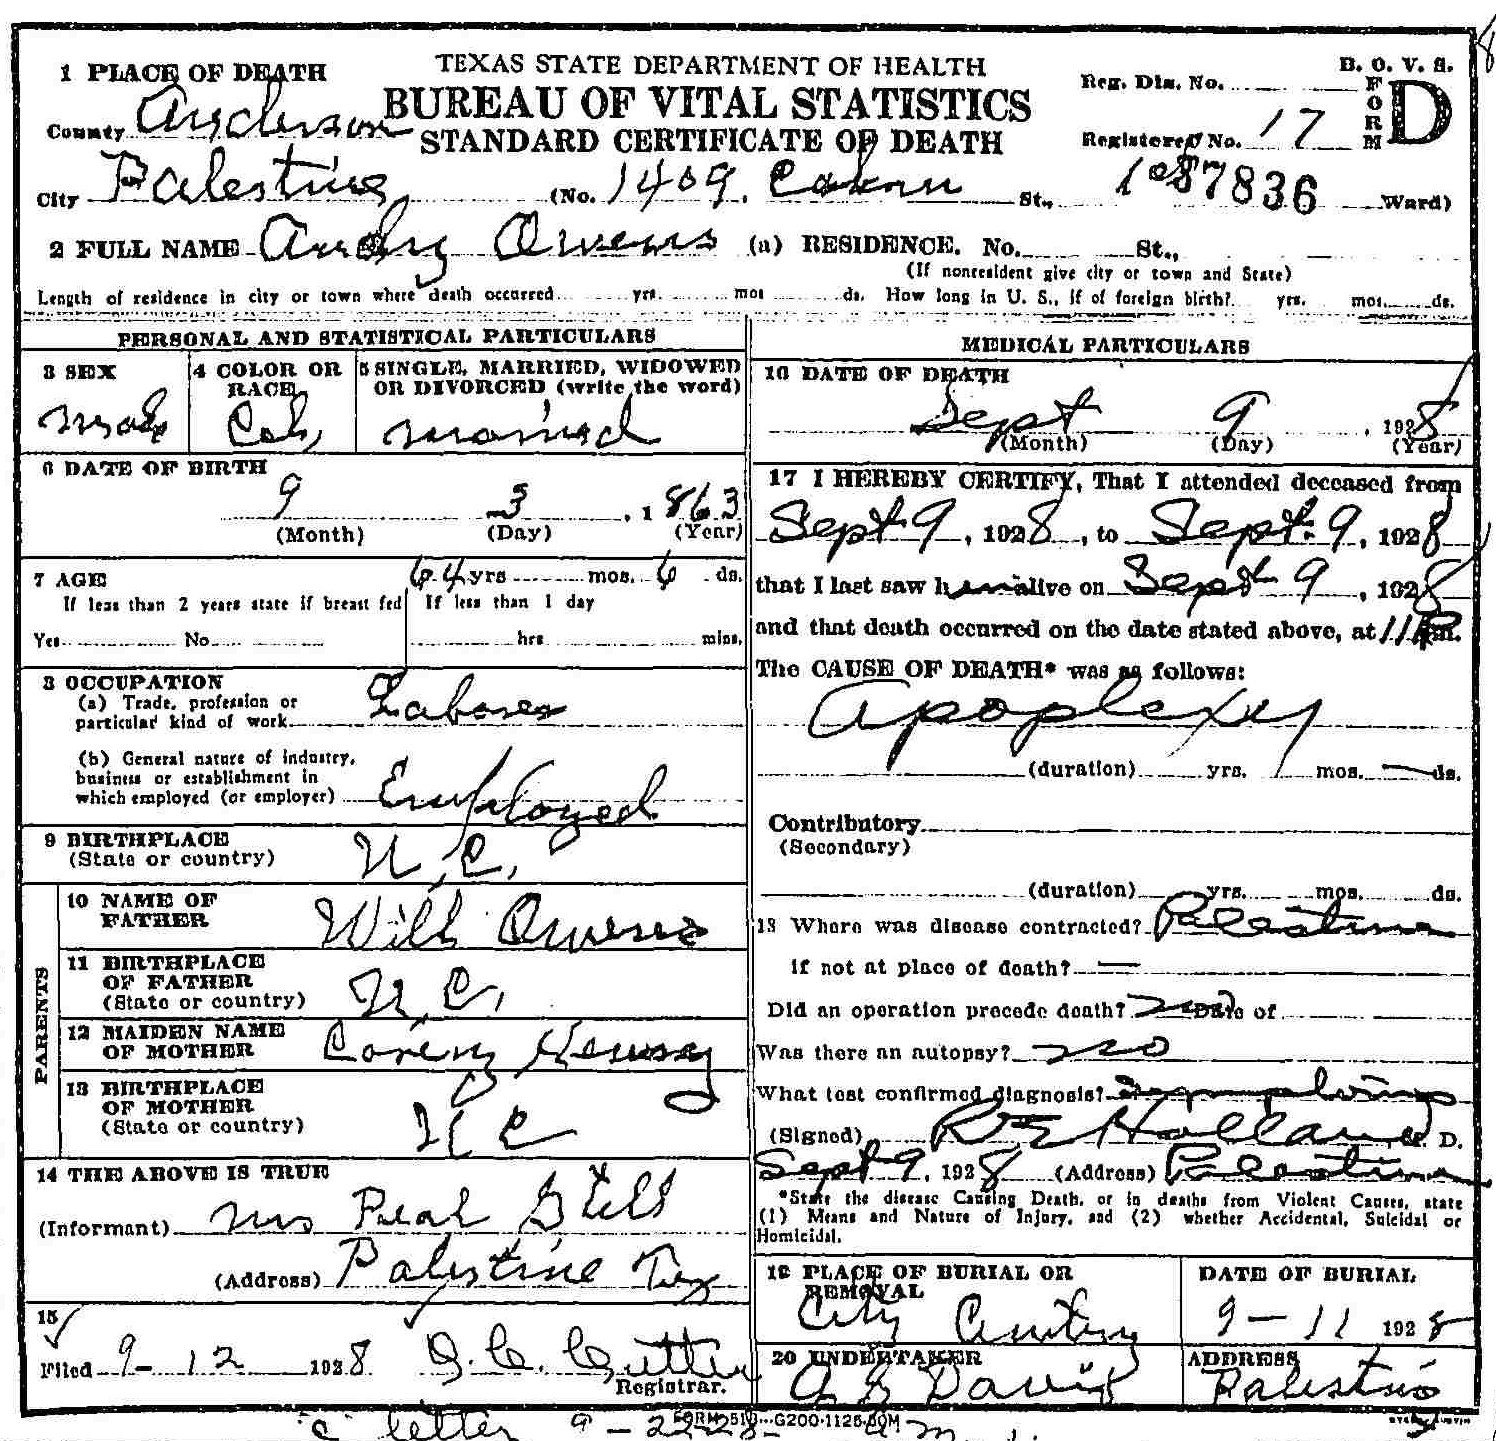 TEXAS STATE DEPARTMENT OF HEALTH
BUREAU OF VITAL STATISTICS
STANDARD CERTIFICATE OF DEATH
B. O. V. S.
FORM D
Reg. Dis. No.
Registered No. 17
1 PLACE OF DEATH
County Anderson
City Palestine (No. 1409, St., 37836 Ward)
2 FULL NAME Andy Owens (a) RESIDENCE. No. St.,
(If nonresident give city or town and State)
Length of residence in city or town where death occurred yrs. mos ds. How long in U. S., if of foreign birth? yrs. mos. ds.
PERSONAL AND STATISTICAL PARTICULARS
3 SEX
Male
4 COLOR OR RACE
Col,
5 SINGLE, MARRIED, WIDOWED OR DIVORCED (write the word)
married
6 DATE OF BIRTH
9 3, 1863
(Month) (Day) (Year)
7 AGE 64 yrs mos. 6 ds.
If less than 2 years state if breast fed
Yes No
If less than 1 day
hrs mins.
8 OCCUPATION
(a) Trade, profession or
particular kind of work Laborer
(b) General nature of industry,
business or establishment in
which employed (or employer) Employed
9 BIRTHPLACE
(State or country) N. C.
PARENTS
10 NAME OF
FATHER Will Owens
11 BIRTHPLACE
OF FATHER
(State or country) N. C.
12 MAIDEN NAME
OF MOTHER
13 BIRTHPLACE
OF MOTHER
(State or country) N C
14 THE ABOVE IS TRUE
(Informant) Mrs Pearl Still
(Address) Palestine Tex
15
Filed 9-12 1928
Registrar.
MEDICAL PARTICULARS
16 DATE OF DEATH
Sept 9, 1928
(Month) (Day) (Year)
17 I HEREBY CERTIFY, That I attended deceased from
Sept 9, 1928, to Sept. 9, 1928
that I last saw him alive on Sept 9, 1928
and that death occurred on the date stated above, at 11 P m.
The CAUSE OF DEATH* was as follows:
Apoplexy
(duration) yrs. mos. — ds.
Contributory
(Secondary)
(duration) yrs. mos. ds.
18 Where was disease contracted? Palestine
if not at place of death? —
Did an operation precede death? no Date of
Was there an autopsy? no
What test confirmed diagnosis? Symptoms
(Signed) R E Holland M. D.
Sept 9, 1928 (Address) Palestine
*State the disease Causing Death, or in deaths from Violent Causes, state
(1) Means and Nature of Injury, and (2) whether Accidental, Suicidal or
Homicidal.
19 PLACE OF BURIAL OR
REMOVAL
City Cemetery
DATE OF BURIAL
9-11 1928
20 UNDERTAKER
Davis
ADDRESS
Palestine
"c" letter 9-22-28-